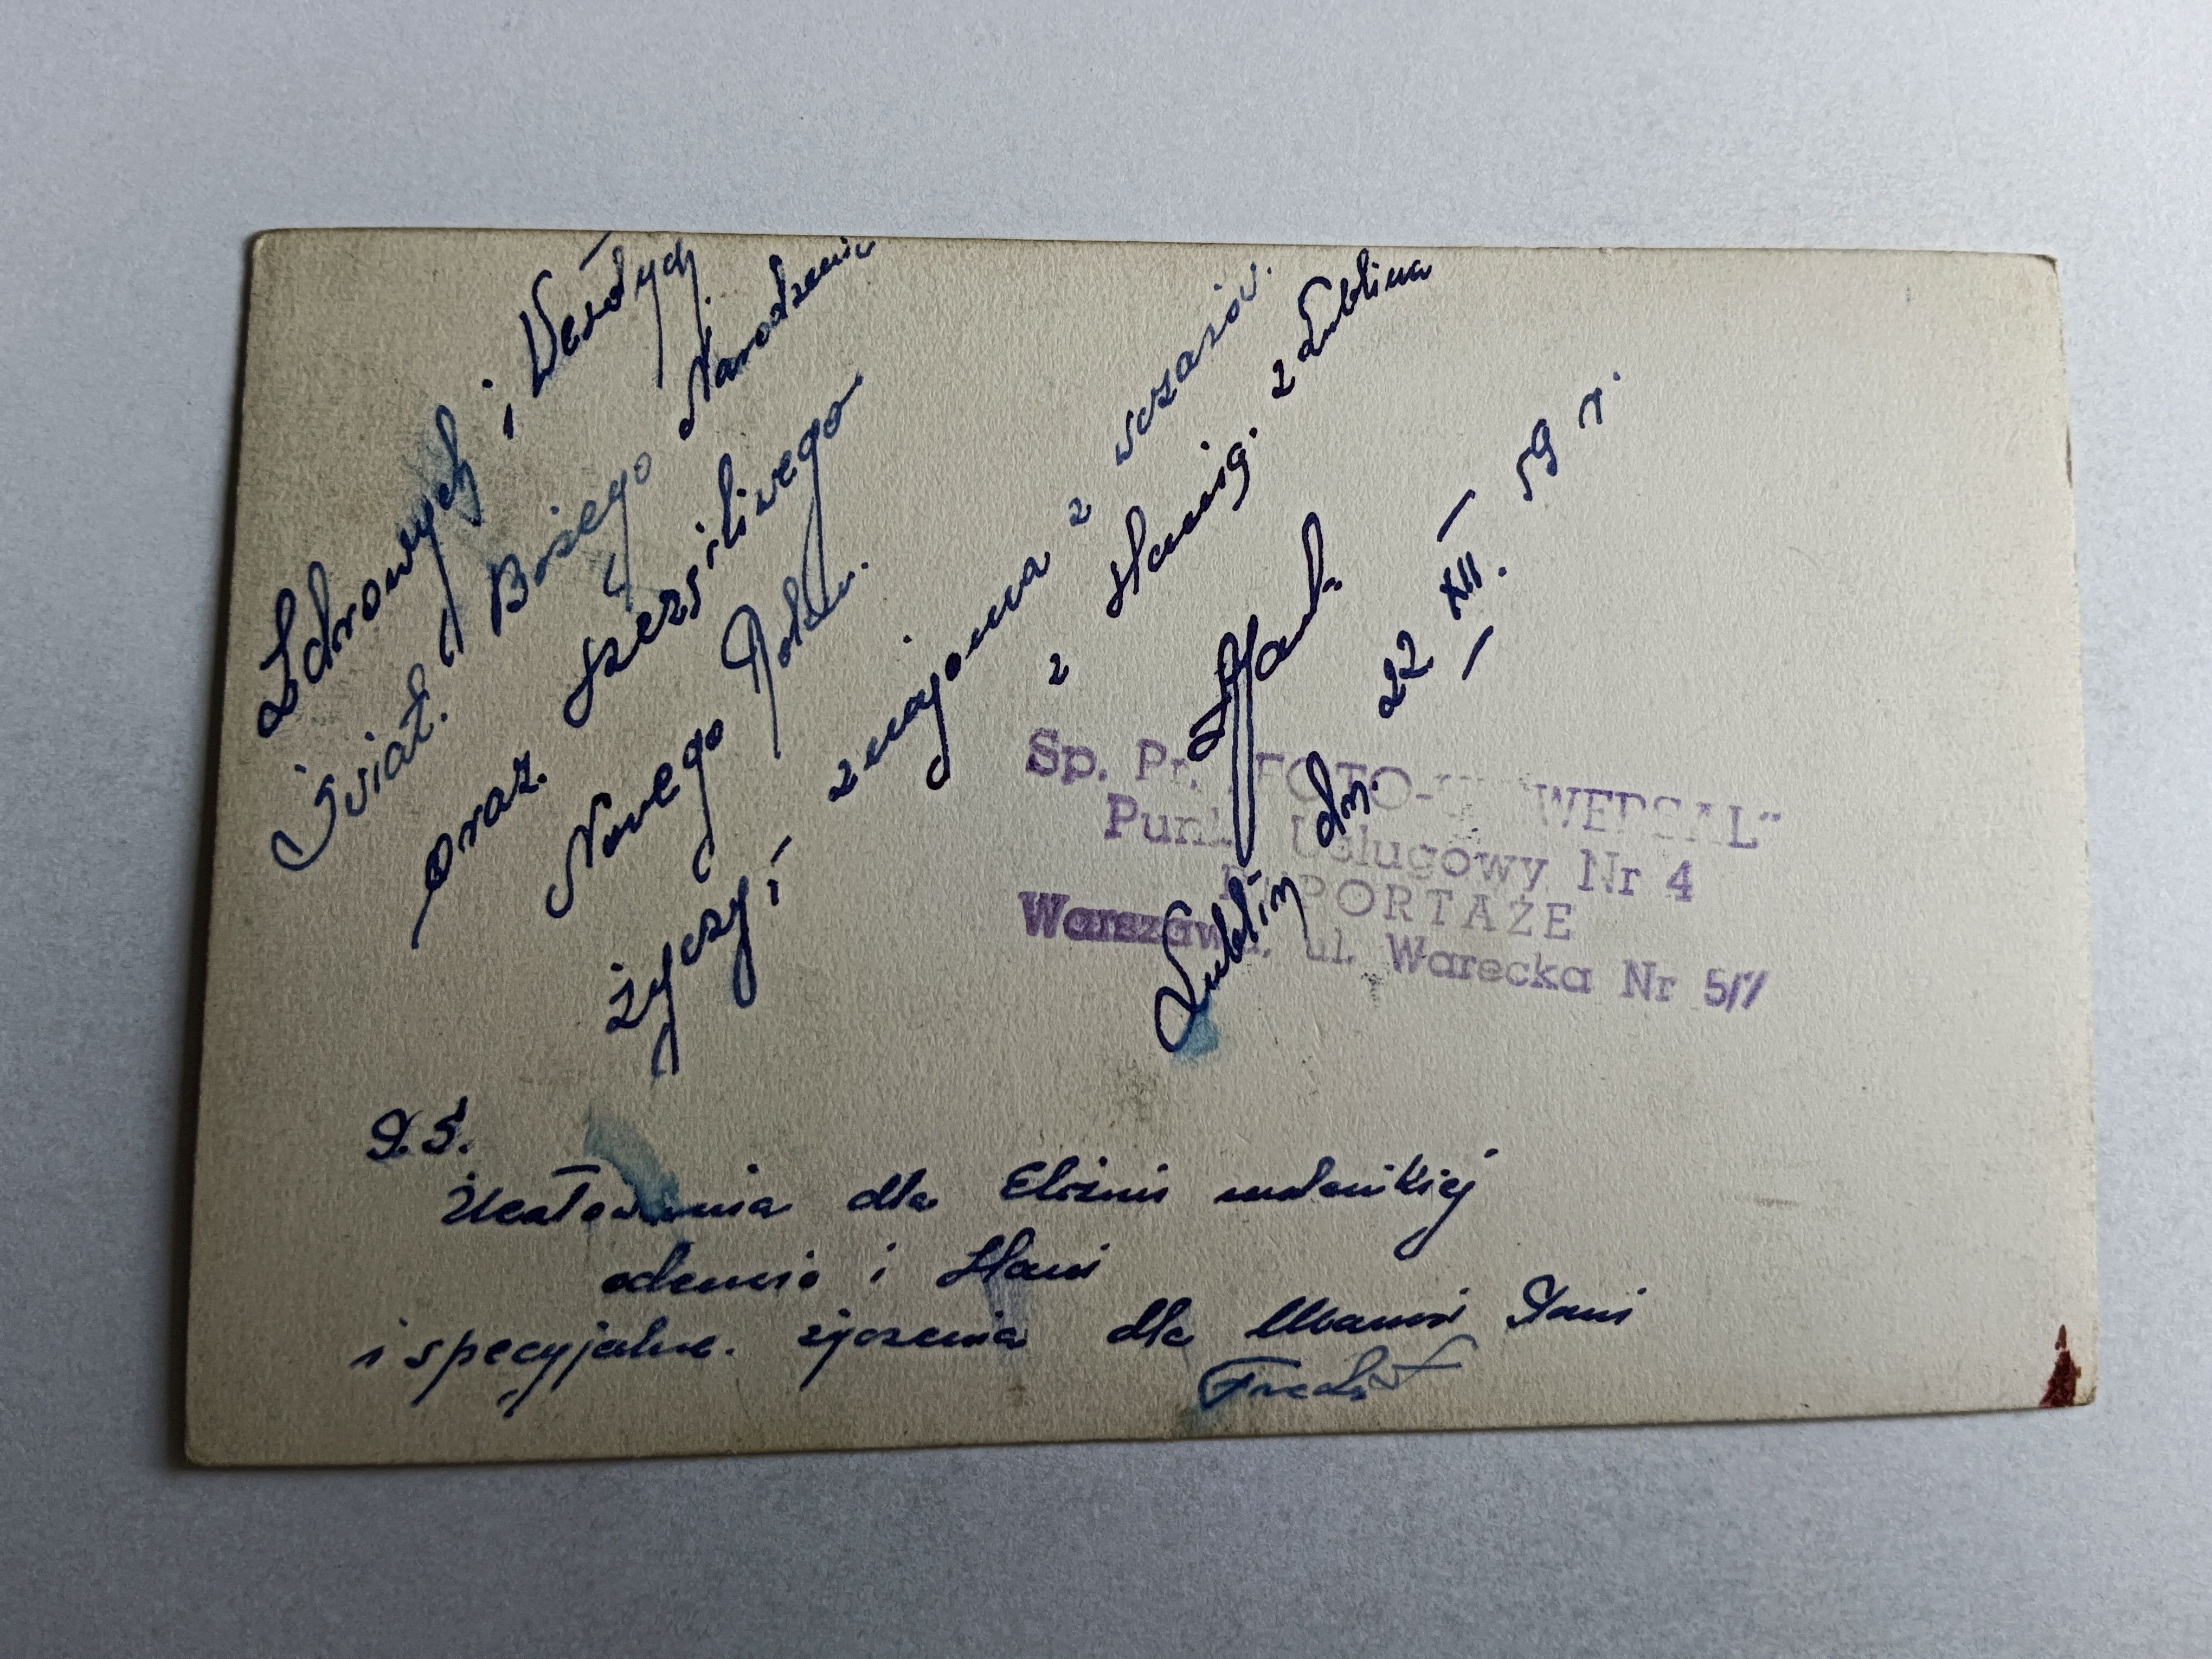 Zdrowych i Wesołych
Świąt. Bożego Narodzenia
oraz. szczęśliwego
Nowego Roku.
życzy
znajoma z wczasów.
z Hanią. z Lublina
Lublin dn. 22 XII. 59 r.
Sp. Pr. „FOTO-UNIWERSAL"
Punkt Usługowy Nr 4
REPORTAŻE
Warszawa, ul. Warecka Nr 5/7
P.S.
Ucałowania dla Elżuni malenikiej
odemie i Hani
i specyjalne. życzenia dla Mamusi Pani